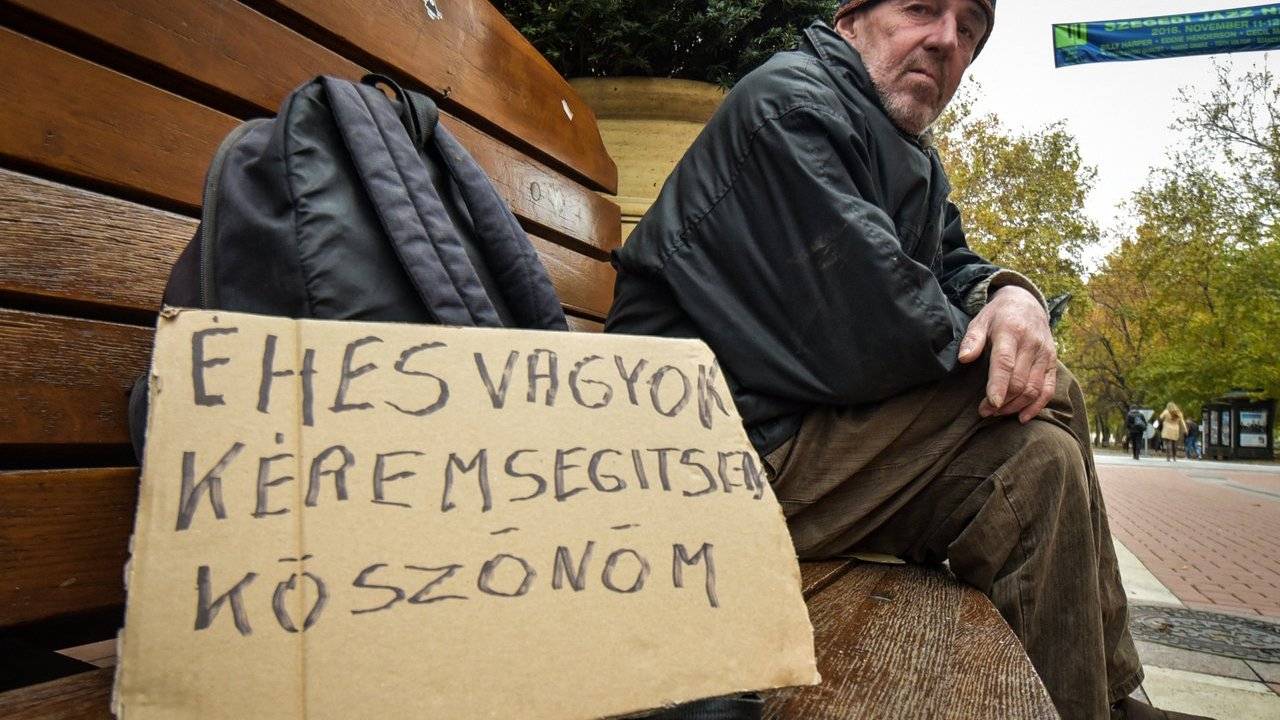 SZEGEDI JAZZ N
2016. NOVEMBER 11-12
BILLY HARPER • EDDIE HENDERSON • CECIL
ÉHES VAGYOK
KÉREM SEGITSEN
KÖSZÖNÖM